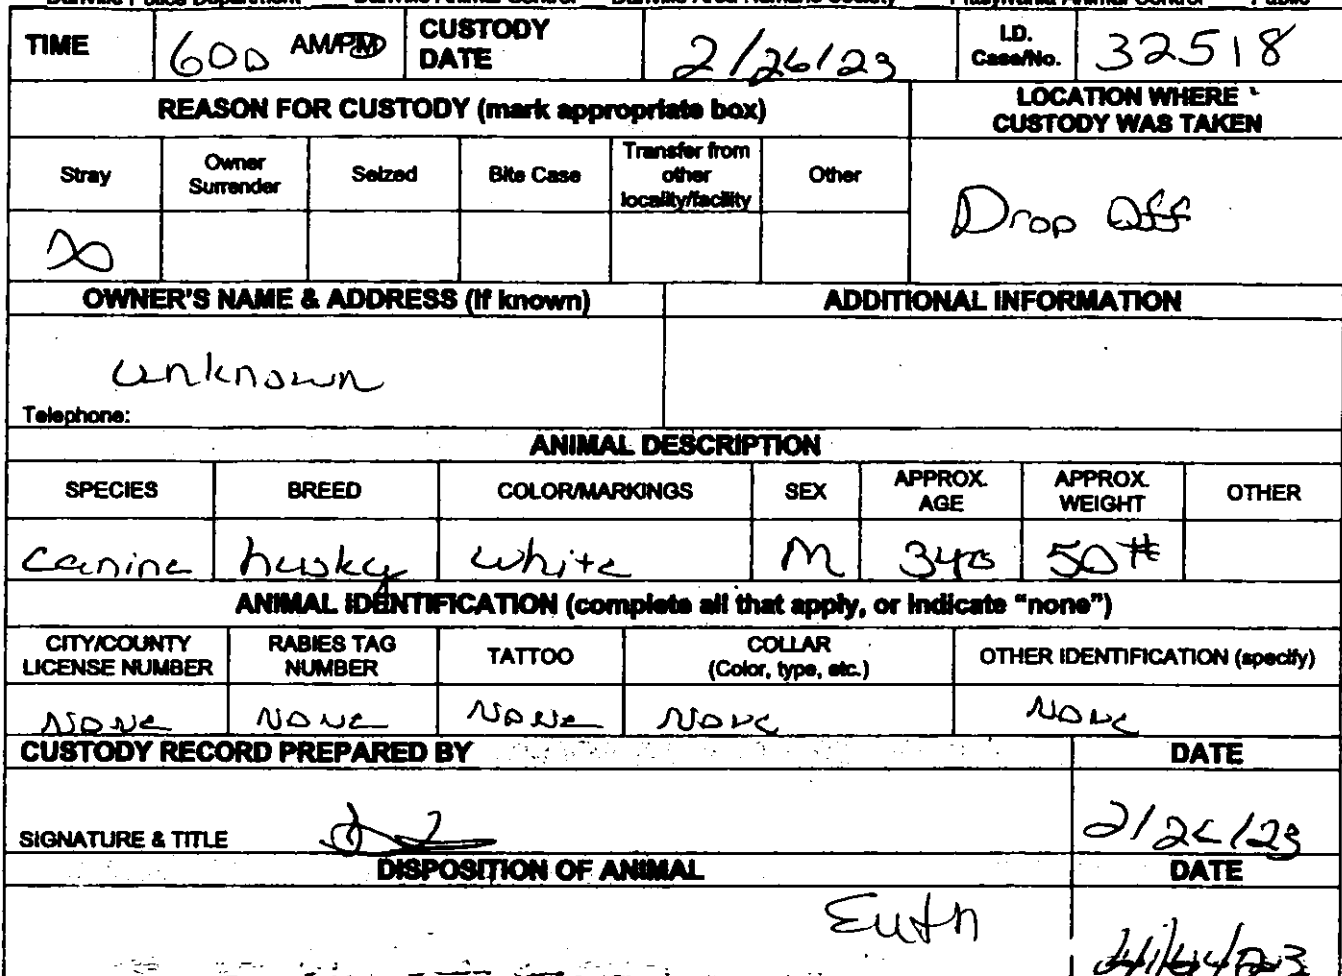 Danville Police Department Danville Animal Control Danville Area Humane Society Pittsylvania Animal Control Public
TIME 600 AM/PM CUSTODY DATE 2/26/23 I.D. Case/No. 32518
REASON FOR CUSTODY (mark appropriate box) LOCATION WHERE CUSTODY WAS TAKEN
Stray Owner Surrender Seized Bite Case Transfer from other locality/facility Other
Drop Off
OWNER'S NAME & ADDRESS (If known) ADDITIONAL INFORMATION
unknown
Telephone:
ANIMAL DESCRIPTION
SPECIES BREED COLOR/MARKINGS SEX APPROX. AGE APPROX. WEIGHT OTHER
Canine husky white M 3yo 50#
ANIMAL IDENTIFICATION (complete all that apply, or indicate "none")
CITY/COUNTY LICENSE NUMBER RABIES TAG NUMBER TATTOO COLLAR (Color, type, etc.) OTHER IDENTIFICATION (specify)
None None None None None
CUSTODY RECORD PREPARED BY DATE
SIGNATURE & TITLE 2/26/23
DISPOSITION OF ANIMAL DATE
Euth